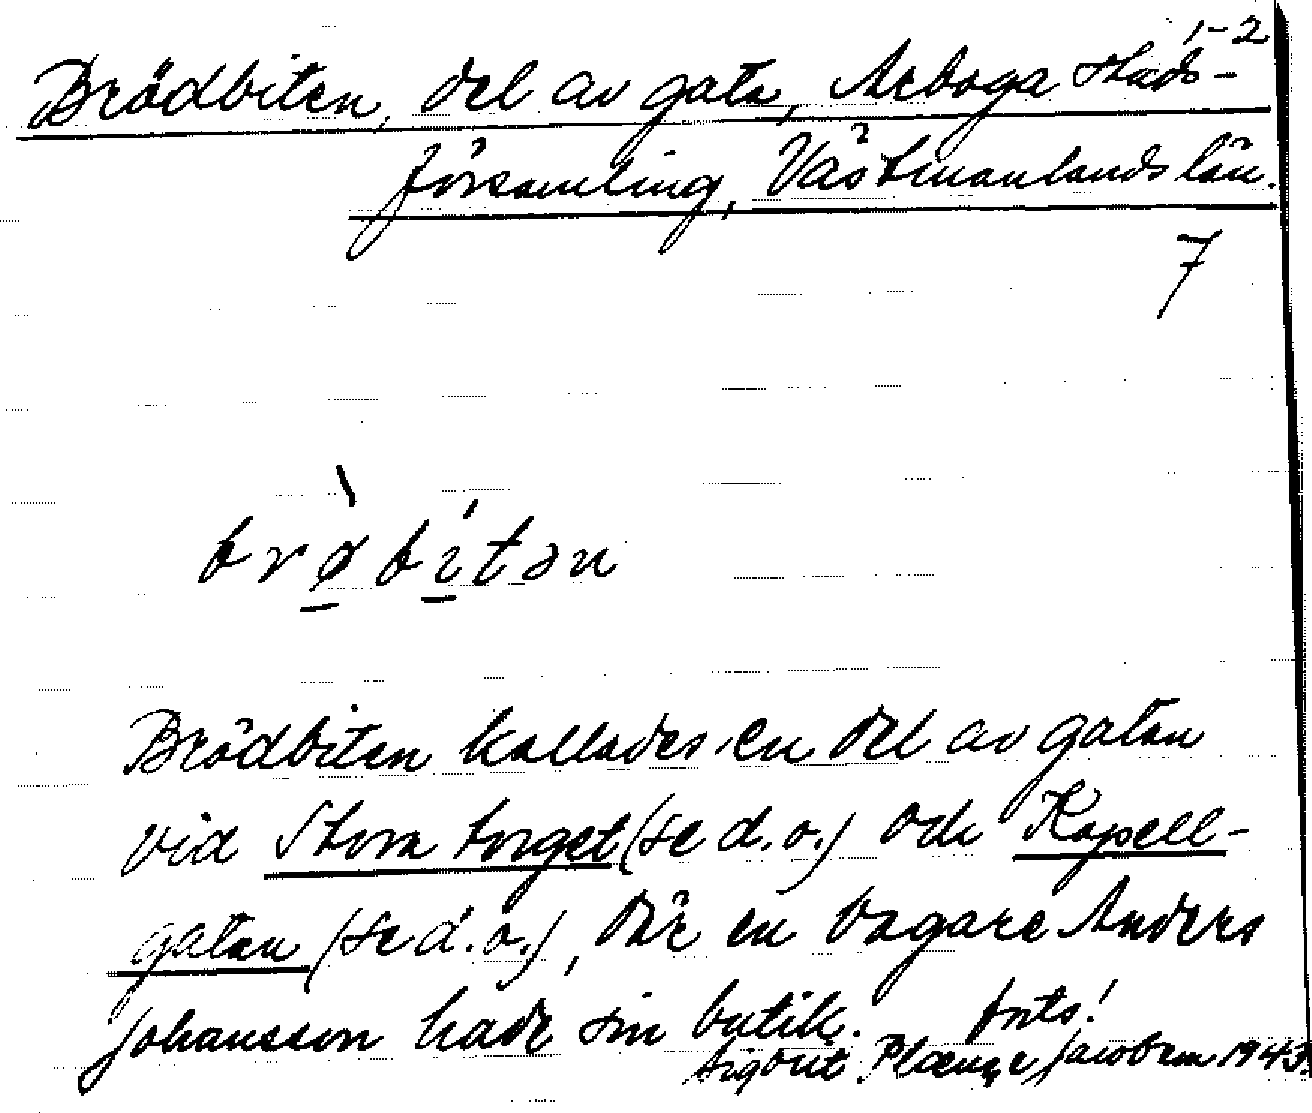 1-2
Brödbiten, del av gata, Arboga stads-
församling, Västmanlands län.
7
brø̀bítən
Brödbiten kallades en del av gatan
vid Stora torget (se d.o.) och Kapell-
gatan (se d.o.), där en bagare Anders
Johansson hade sin butik. forts!
Sigbrit Plænge Jacobson 1943.